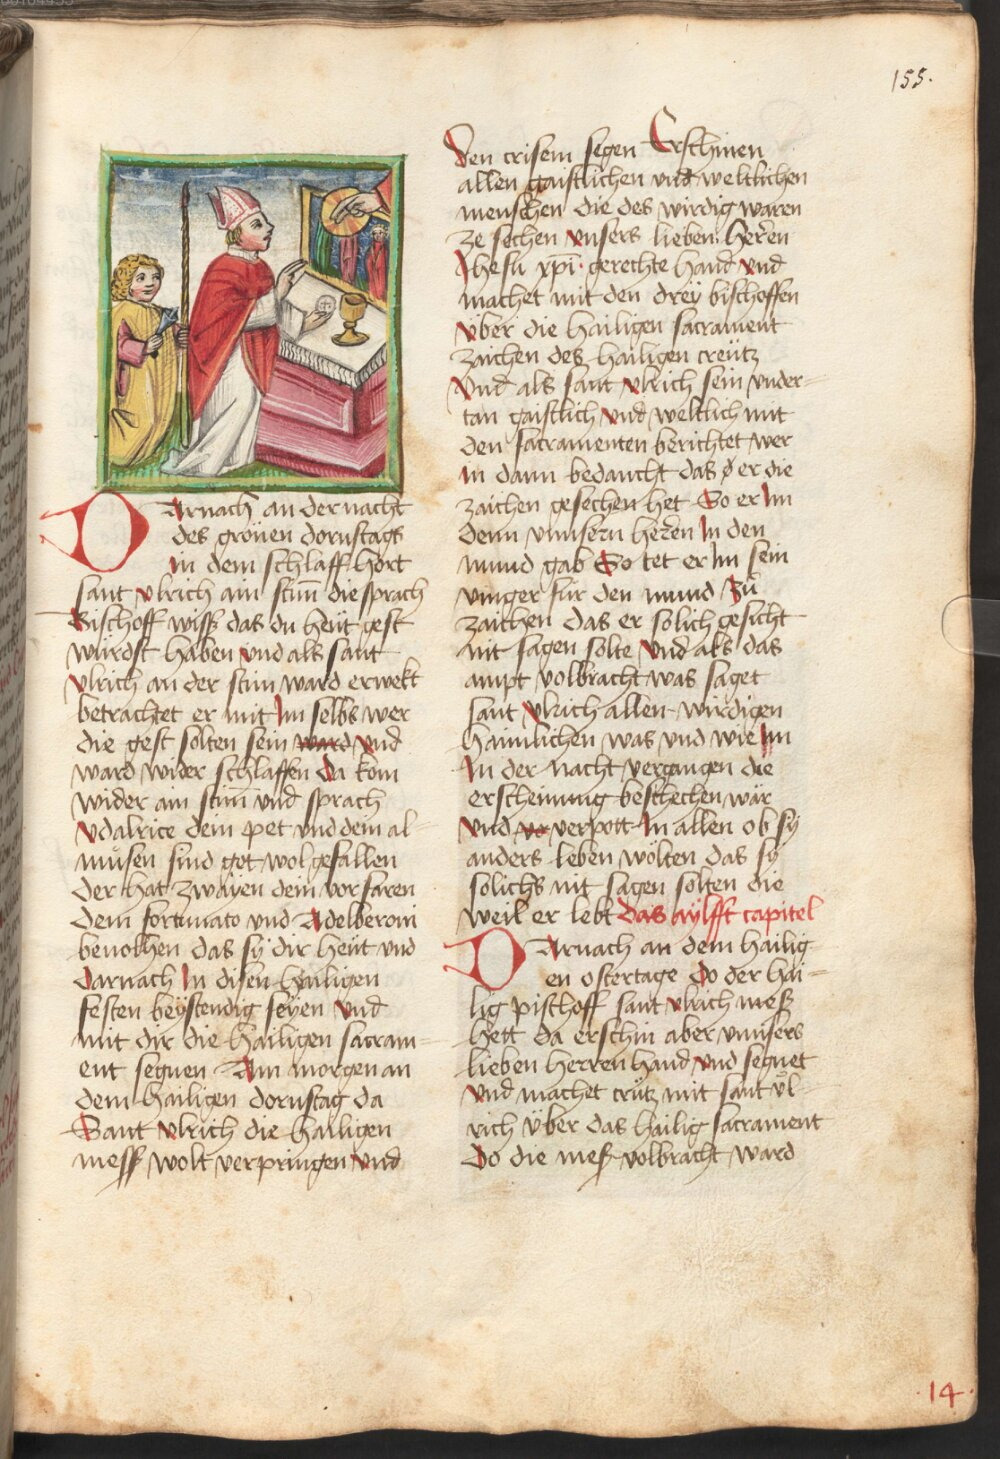 155.
Darnach an der nacht
des grönen dornstags
in dem schlaff hort
sant vlrich ain stim̄ die sprach
Bischoff wiss das du heüt gest
würdst haben vnd als sant
vlrich an der stim ward erwekt
betrachtet er mit Im selbs wer
die gest solten sein ward vnd
ward wider schlaffen da kom
wider ain stim̄ vnd sprach
vdalrice dein pet vnd dem al-
muͦsen sind got wol gefallen
der hat zwayen dein vorfaren
dem fortunato vnd Adelberoni
beuolhen das sÿ dir heüt vnd
darnach In disen heiligen
festen beÿstendig seÿen vnd
mit dir die hailigen sacram-
ent segnen Am morgen an
dem hailigen dornstag da
Sant vlrich die hailigen
mess wolt verpringen vnd
den crisem segen Erschinen
allen gaistlichen vnd weltlichen
menschen die des wirdig waren
ze sechen vnsers lieben Heren
Ihesu xp̄i gerechte hand vnd
machet mit den dreÿ bischoffen
v̈ber die hailigen sacrament
zaichen des hailigen creütz
Vnd als sant vlrich sein vnder-
tan gaistlich vnd weltlich mit
den sacramenten berichtet wer
In dann bedaucht das er die
zaichen gesechen het So er Im
denn vnnsern heren In den
mund gab So tet er Im sein
vinger für den mund Zuͦ
zaichen das er solich gesicht
nit sagen solte Vnd als das
ampt volbracht was saget
sant vlrich allen wirdigen
haimlichen was vnd wie Im
In der nacht vergangen die
erscheinung beschechen wär
vnd vo verpott In allen ob sÿ
anders leben wölten das sÿ
solichs nit sagen solten die
weil er lebt das aÿlfft capitel
Darnach an dem hailig
en ostertage Do der hai-
lig pischoff sant vlrich mess
hett da erschin aber vnnsers
lieben herren hand vnd segnet
vnd machet crütz mit sant vͦl-
rich über das hailig sacrament
Do die mess volbracht ward
14